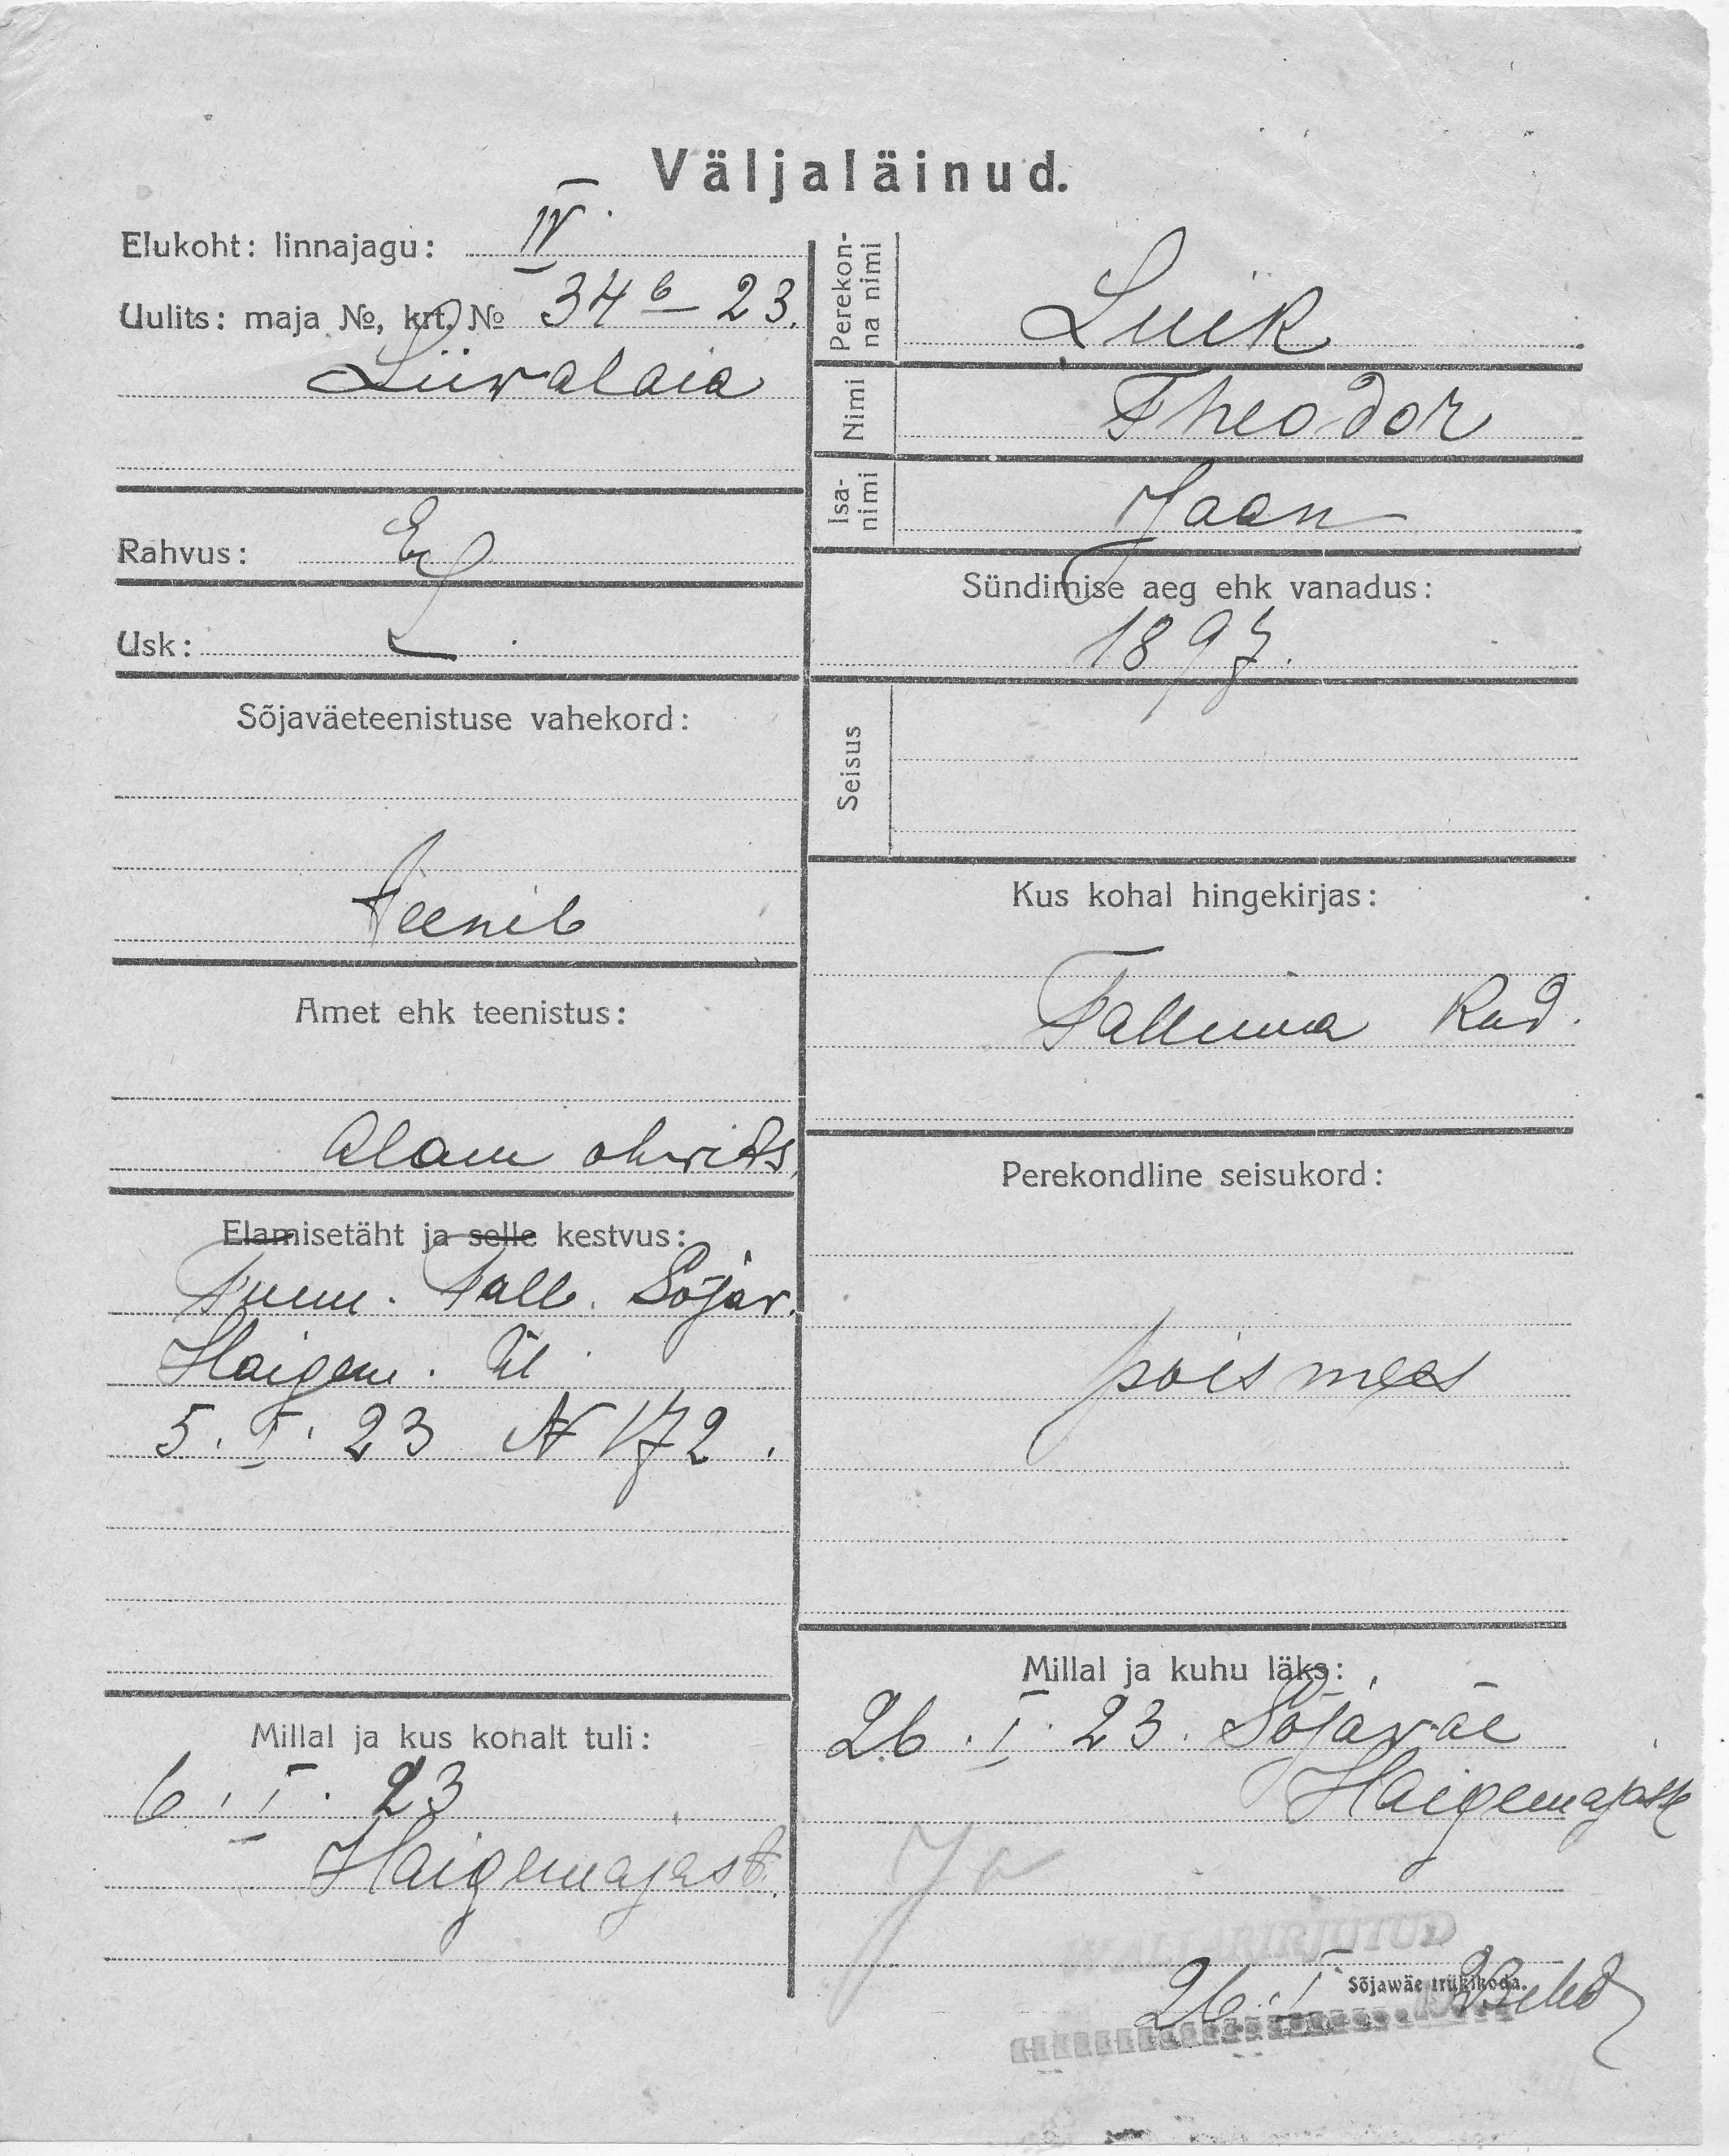 Väljaläinud.
Elukoht: linnajagu: IV.
Uulits: maja №, krt. № 34 b — 23.
Liivalaia
Rahvus: E
Usk: L.
Sõjaväeteenistuse vahekord:
Teenib
Amet ehk teenistus:
Alam ohvits.
Elamisetäht ja selle kestvus:
Tunn. Tall. Sõjav.
Haigem. Ül.
5. I. 23 N 172.
Millal ja kus kohalt tuli:
6. I. 23
Haigemajast.
Perekonna nimi Luik
Nimi Theodor
Isanimi Jaan
Sündimise aeg ehk vanadus:
1897.
Seisus
Kus kohal hingekirjas:
Tallinna Kod.
Perekondline seisukord:
poismees
Millal ja kuhu läks:
26. I. 23. Sõjaväe
Haigemajasse
WÄLJAKIRJUTUD
26. I
Sõjawäe trükikoda.